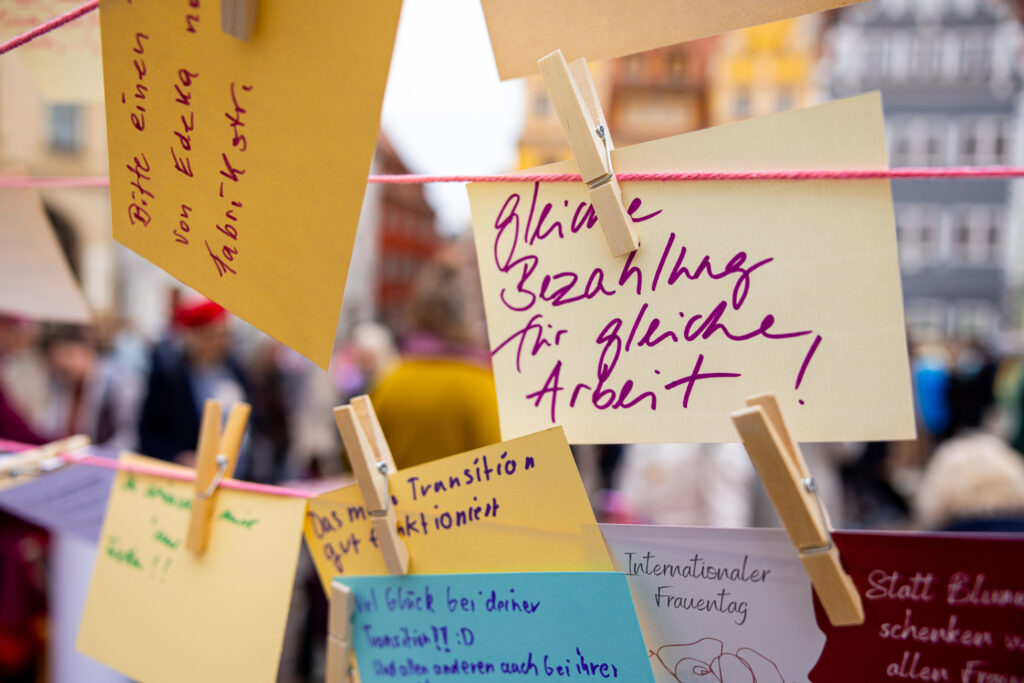 Bitte einen
von Edeka
Fabrikstr.
gleiche
Bezahlung
für gleiche
Arbeit!
mir
Das Transition
gut funktioniert
Viel Glück bei deiner
Transition!! :D
Und allen anderen auch bei ihrer
Internationaler
Frauentag
Statt Blum
schenken
allen Frauen